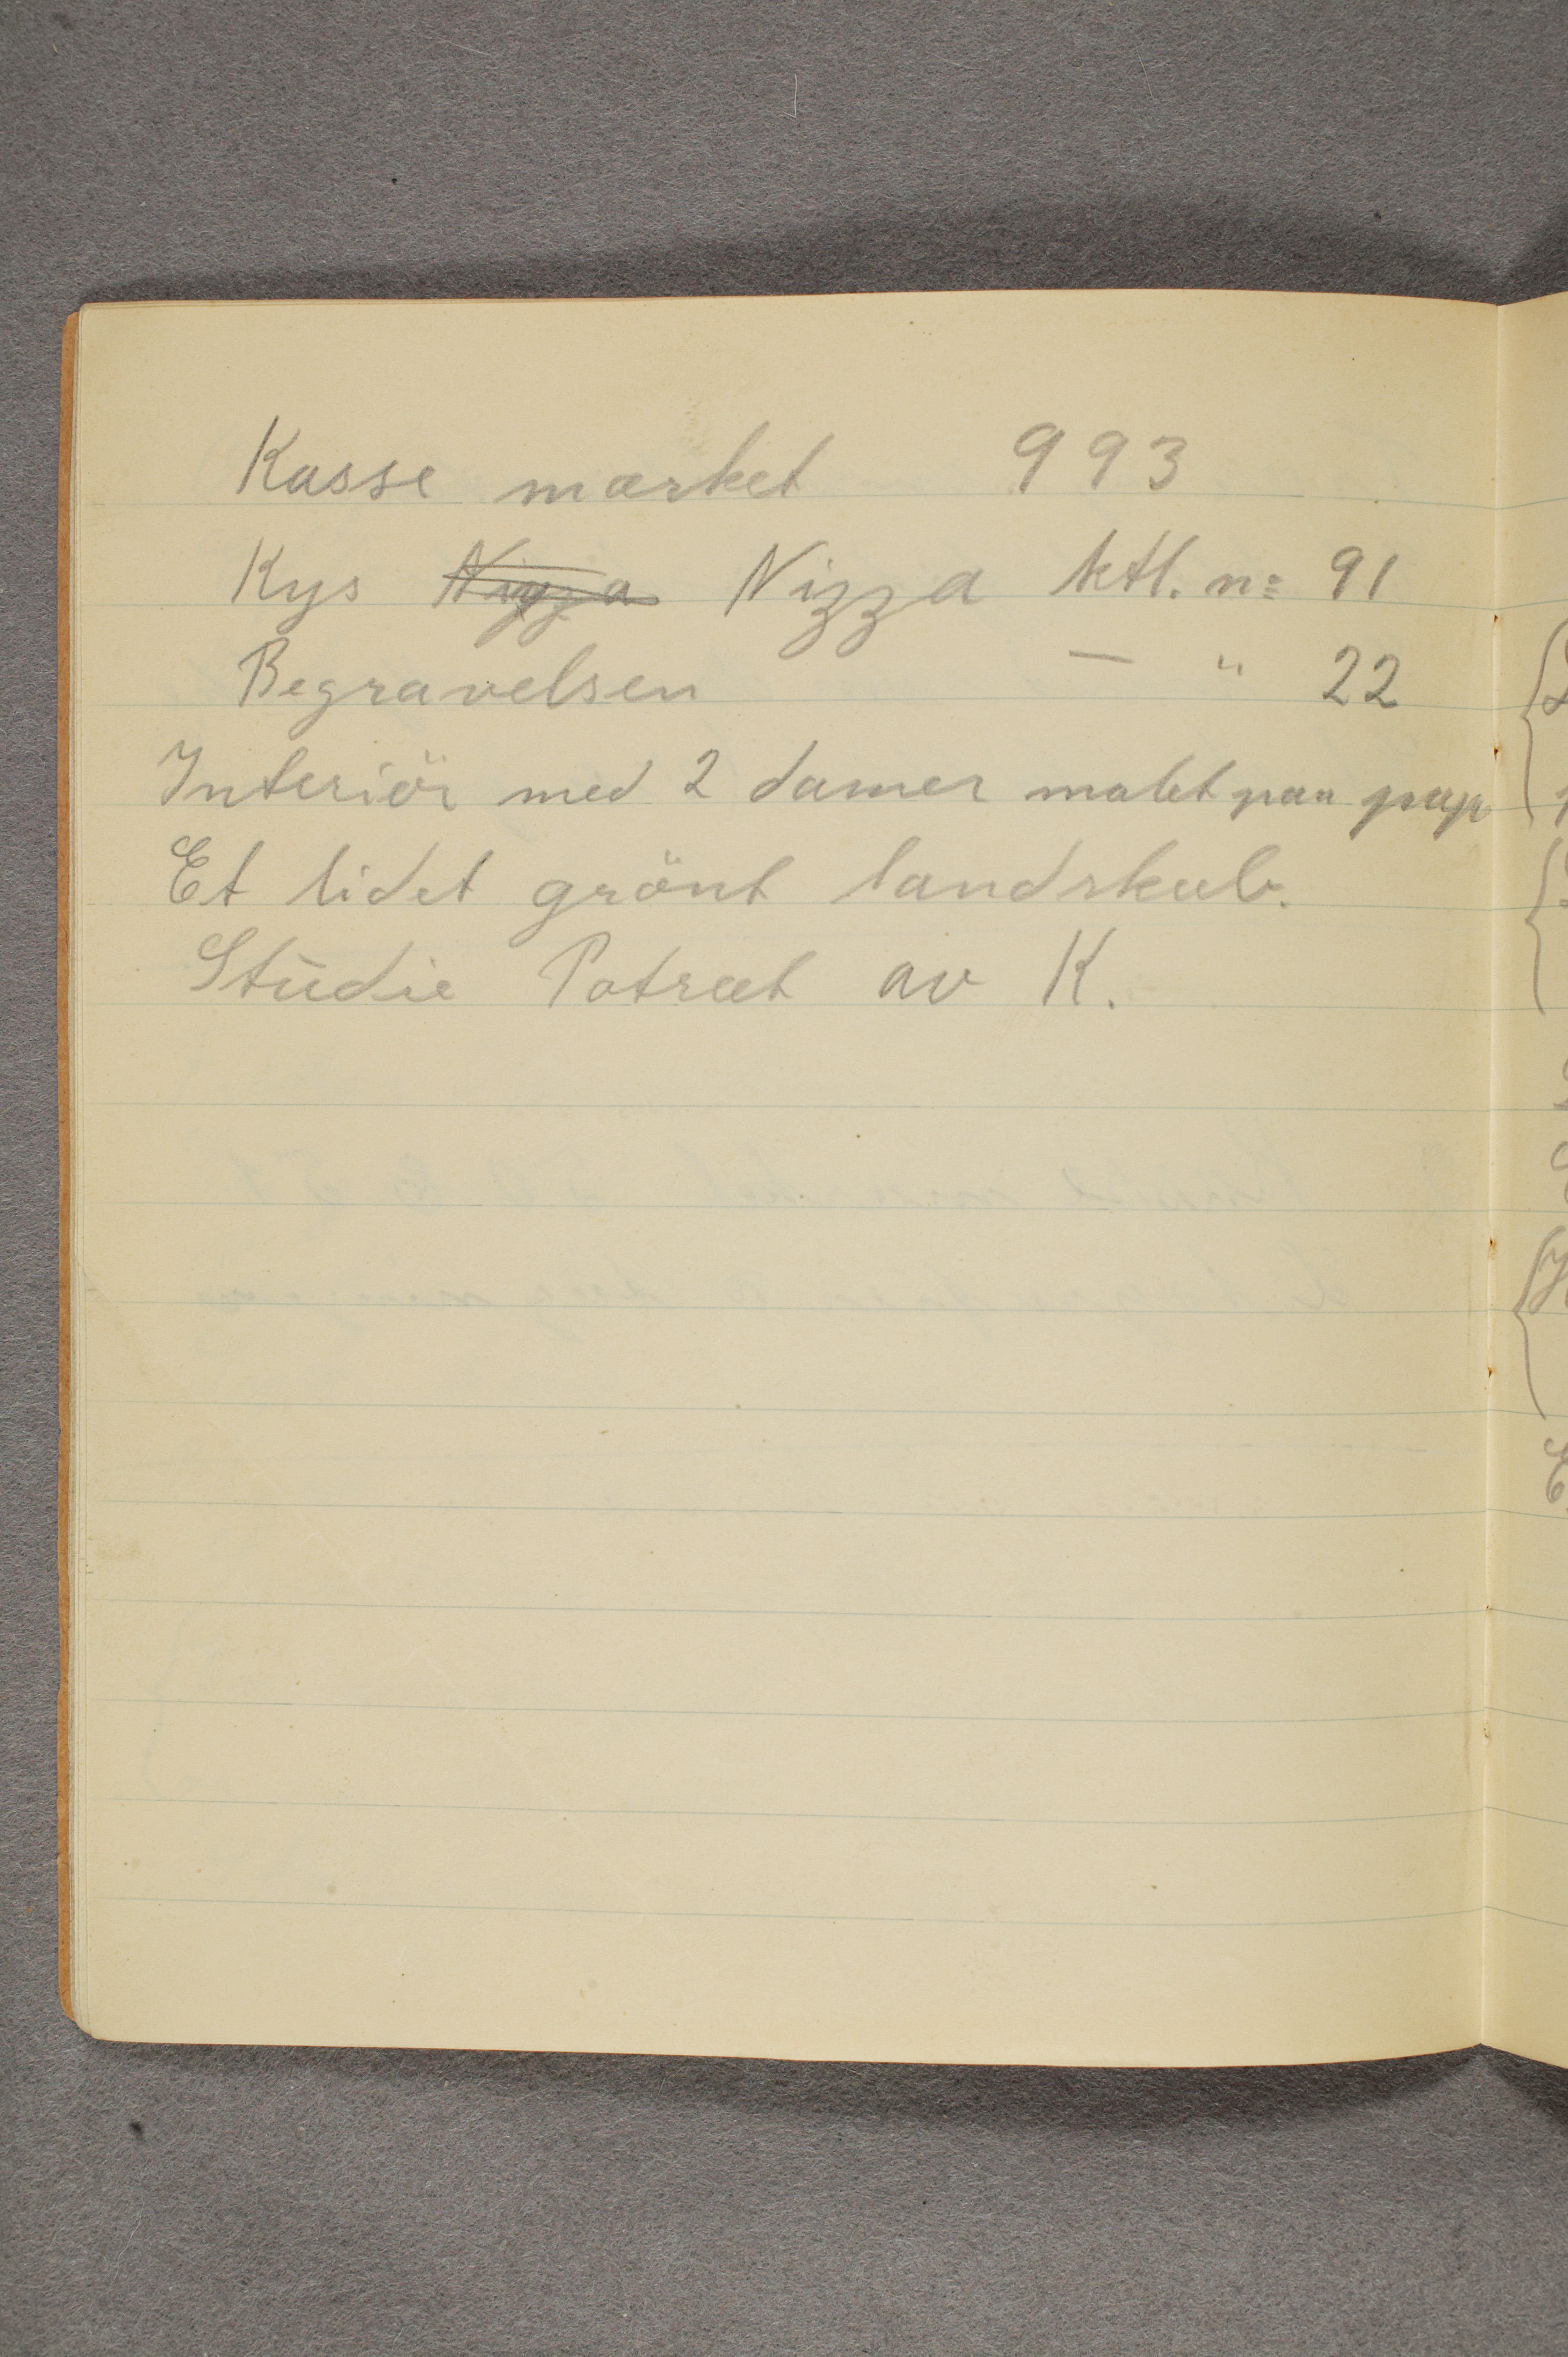 Kasse mærket 993
Kys Nizza Nizza ktl. n= 91
Begravelsen — " 22
Interiör med 2 damer malet paa pap
Et lidet grönt landskab.
Stūdie Potræt av K.